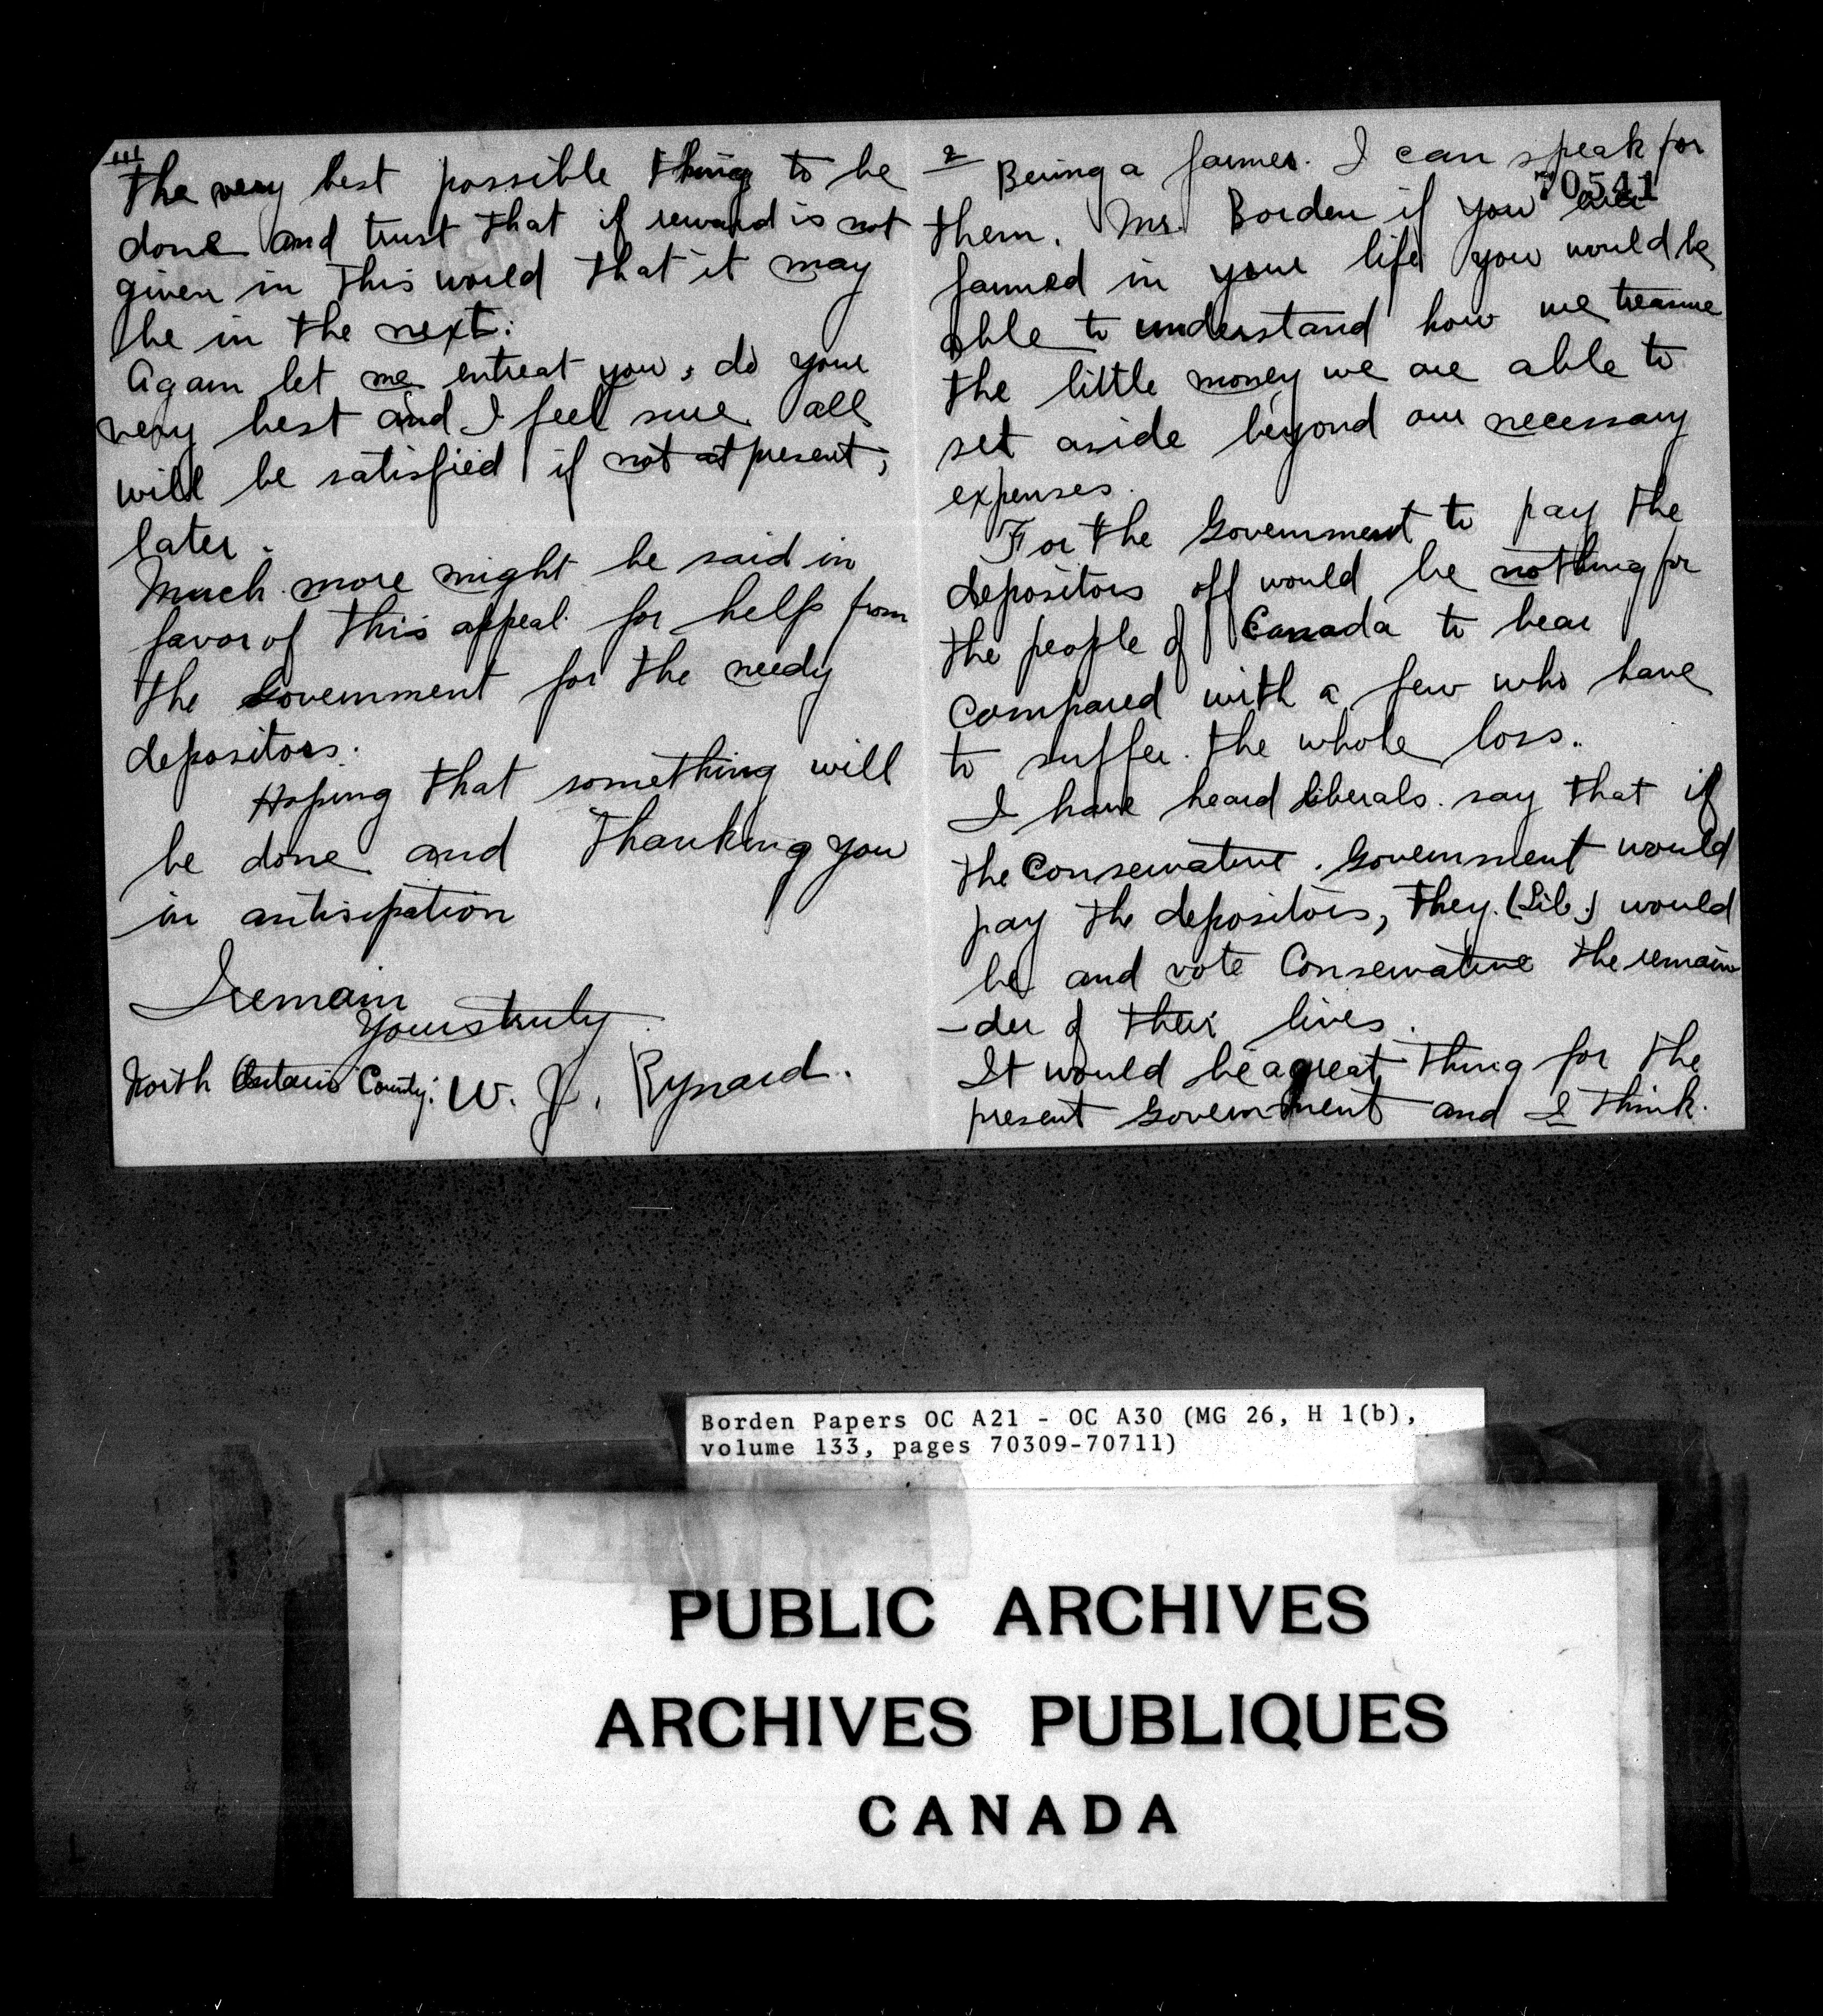 111
The very best possible thing to be
done and trust that if reward is not
given in this world that it may
be in the next.
Again let me entreat you, do your
very best and I feel sure all
will be satisfied if not at present,
later.
Much more might be said in
favor of this appeal for help from
the Government for the needy
depositors.
Hoping that something will
be done and thanking you
in antisipation
I remain
Yours truly
North Ontario County: W. J. Rynard.
2
Being a farmer. I can speak for
70541
them. Mr. Borden if you ever
farmed in your life you would be
able to understand how we treasure
the little money we are able to
set aside beyond our necessary
expenses.
For the Government to pay the
depositors off would be nothing for
the people of Canada to bear
compared with a few who have
to suffer the whole loss.
I have heard Liberals say that if
the Conservative Government would
pay the depositors, they (Lib.) would
be and vote Conservative the remain
-der of their lives.
It would be a great thing for the
present Government and I think.
Borden Papers OC A21 - OC A30 (MG 26, H 1(b),
volume 133, pages 70309-70711)
PUBLIC ARCHIVES
ARCHIVES PUBLIQUES
CANADA